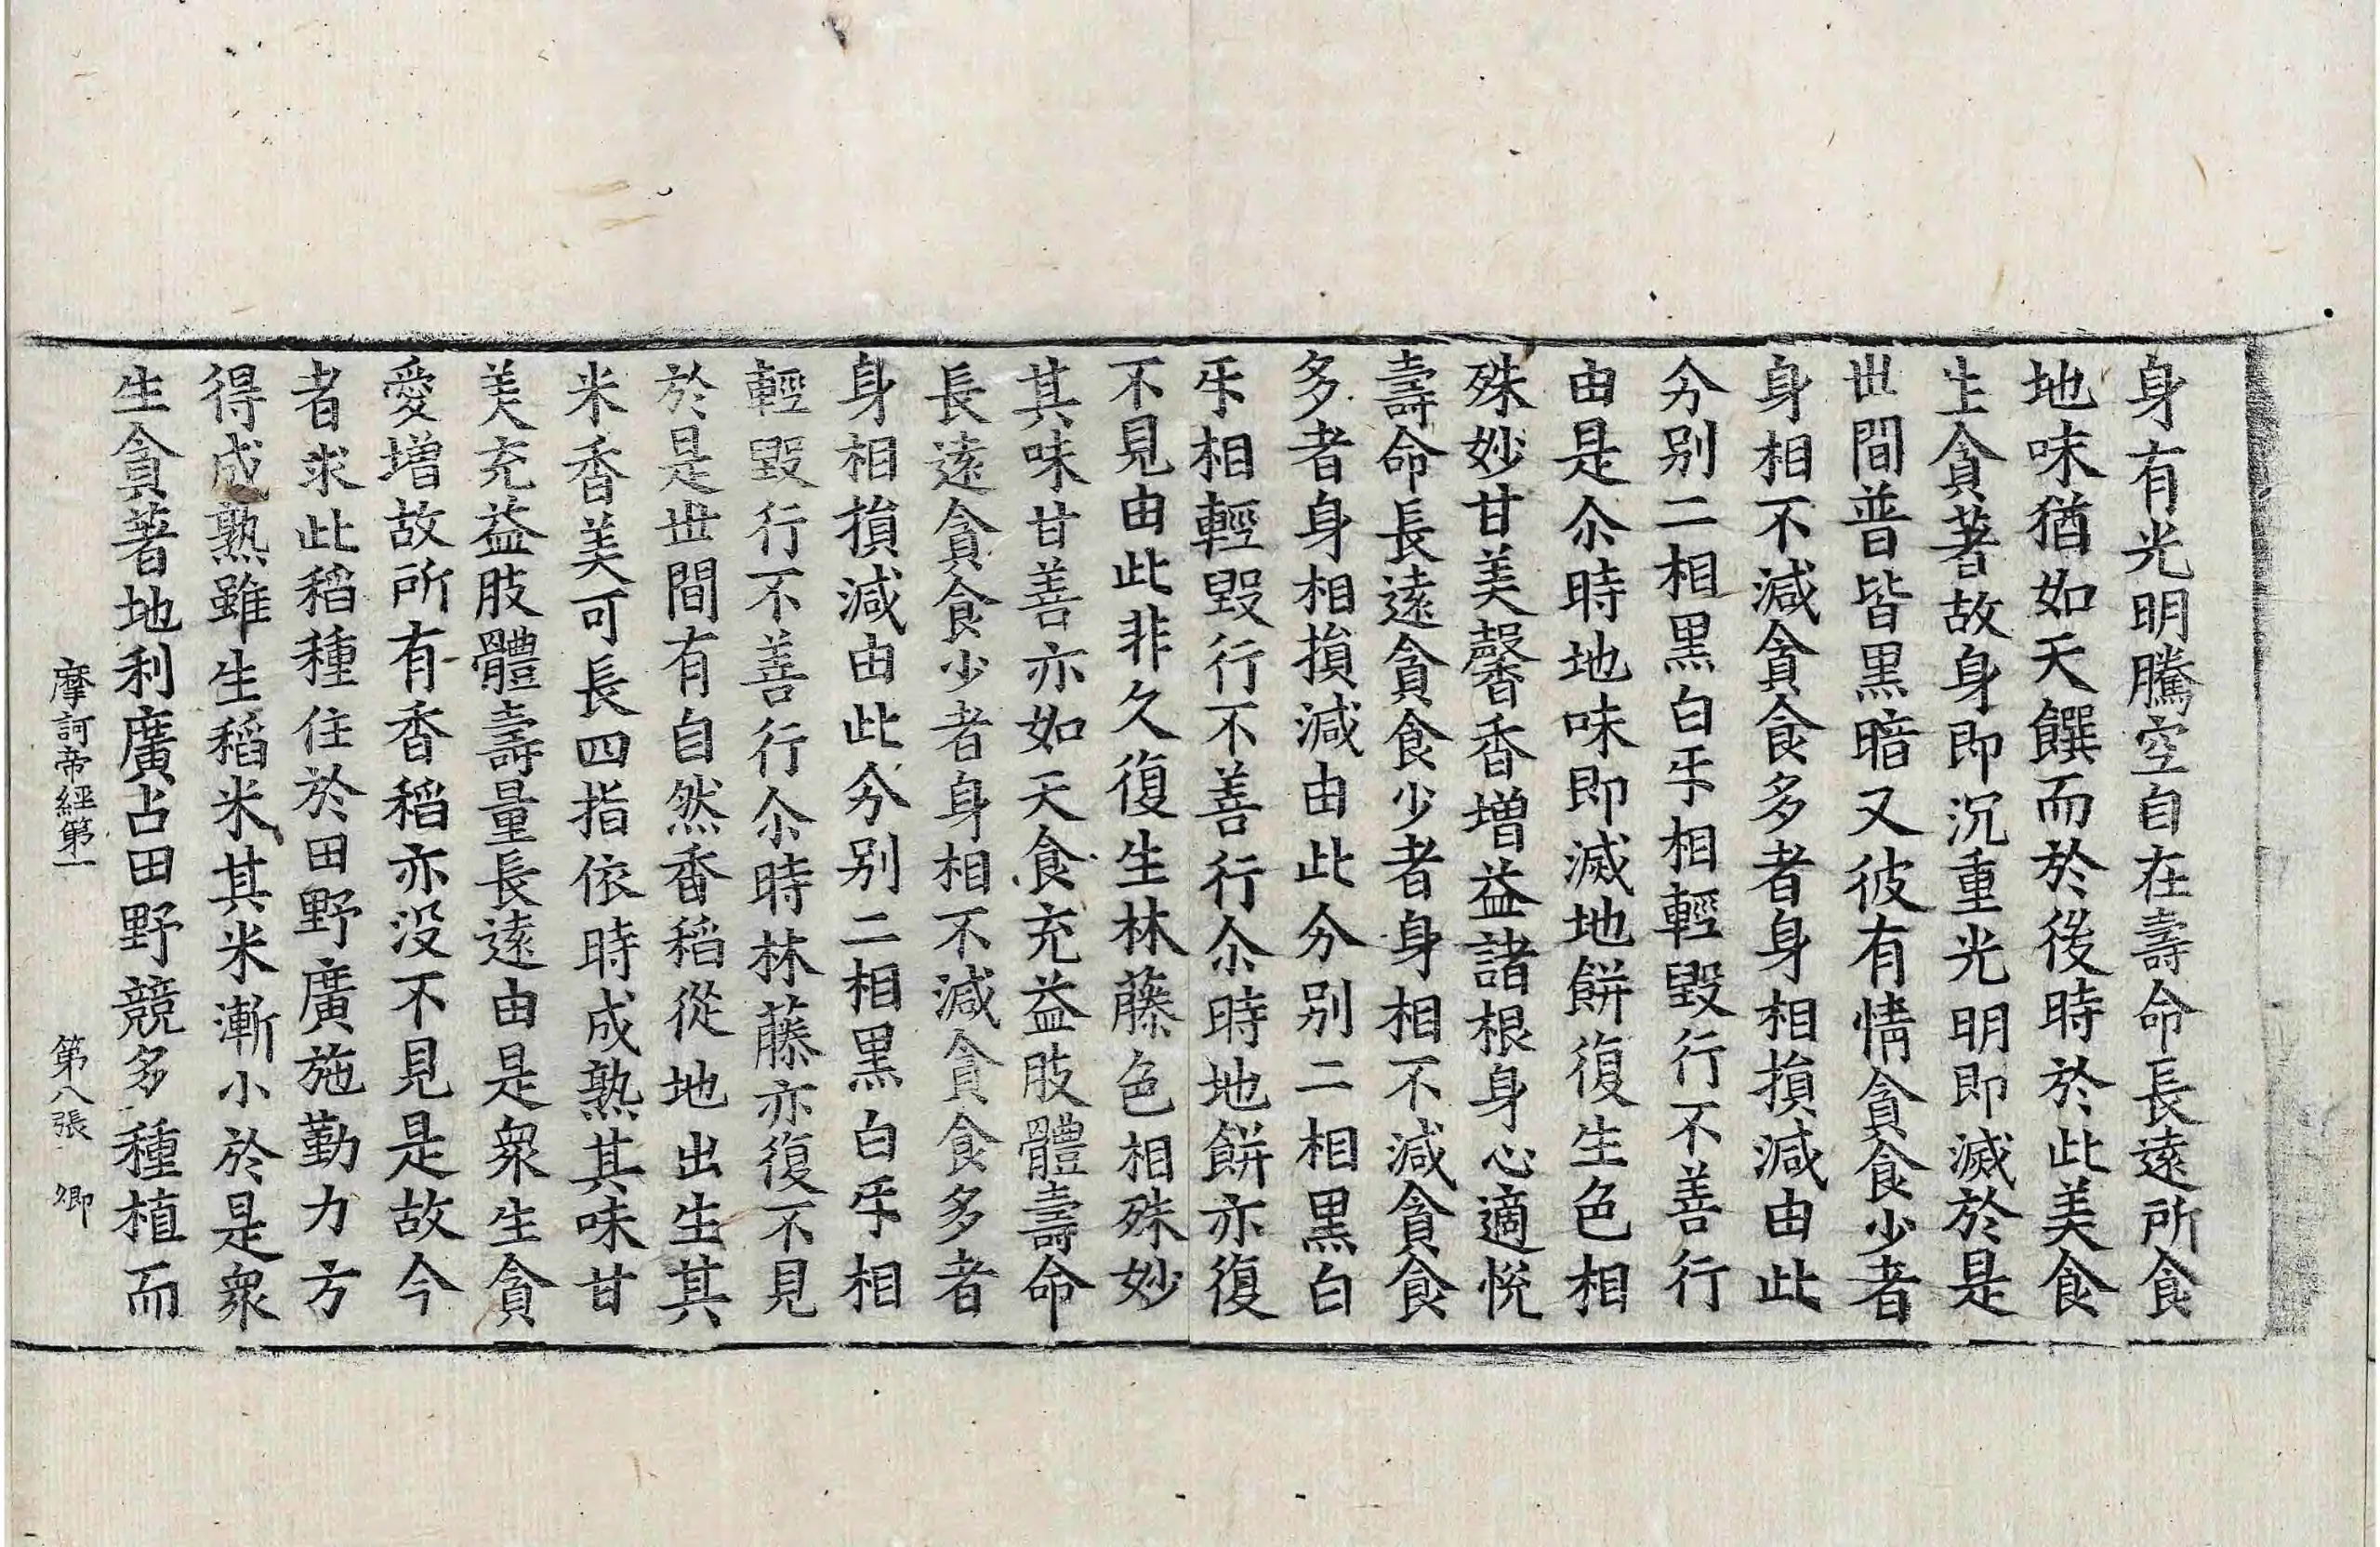 身有光明騰空自在壽命長遠所食
地味猶如天饌而於後時於此美食
生貪著故身即沉重光明即滅於是
世間普皆黑暗又彼有情貪食少者
身相不減貪食多者身相損減由此
分别二相黑白㸦相輕毀行不善行
由是尒時地味即滅地餅復生色相
殊妙甘美馨香增益諸根身心適悅
壽命長遠貪食少者身相不減貪食
多者身相損減由此分别二相黑白
㸦相輕毀行不善行尒時地餅亦復
不見由此非久復生林藤色相殊妙
其味甘善亦如天食充益肢體壽命
長遠貪食少者身相不減貪食多者
身相損減由此分别二相黑白㸦相
輕毀行不善行尒時林藤亦復不見
於是世間有自然香稻從地出生其
米香美可長四指依時成熟其味甘
美充益肢體壽量長遠由是衆生貪
愛增故所有香稻亦没不見是故今
者求此稻種住於田野廣施勤力方
得成熟雖生稻米其米漸小於是衆
生貪著地利廣占田野競多種植而
摩訶帝經第一　第八張　卿